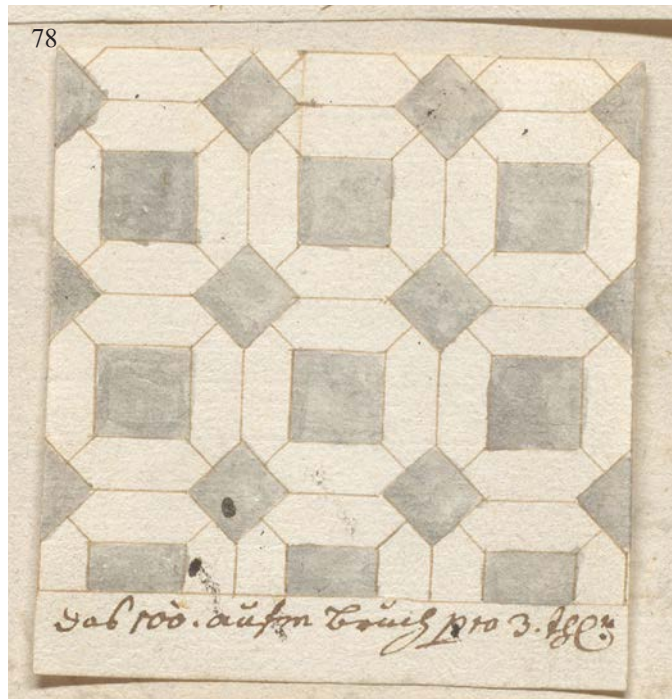 78
das 100. aufm Bruch pro 3. thlr.